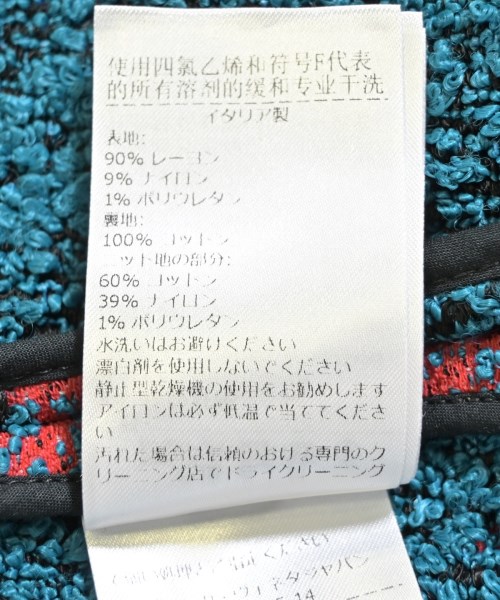 使用四氯乙烯和符号F代表
的所有溶剂的缓和专业干洗
イタリア製
表地:
90% レーヨン
9% ナイロン
1% ポリウレタン
裏地:
100% コットン
ニット地の部分:
60% コットン
39% ナイロン
1% ポリウレタン
水洗いはお避けください
漂白剤を使用しないでください
静止型乾燥機の使用をお勧めします
アイロンは必ず低温で当ててくださ
い
汚れた場合は信頼のおける専門のク
リーニング店でドライクリーニング
ください
ヴェネタジャパン
14